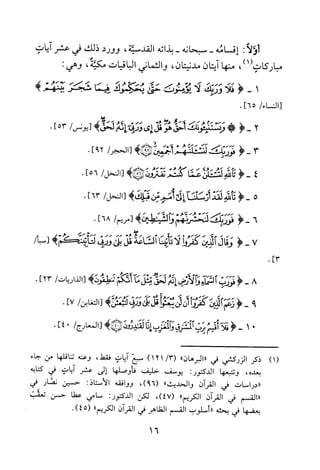 أولاً: إقسامُه ـ سبحانه ـ بذاته القدسيَّة، وورد ذلك في عشر آياتٍ
مباركاتٍ(١)، منها آيتان مدنيتان، والثماني الباقيات مكيَّة، وهي:
١ ـ ﴿فَلَا وَرَبِّكَ لَا يُؤْمِنُونَ حَتَّىٰ يُحَكِّمُوكَ فِيمَا شَجَرَ بَيْنَهُمْ﴾
[النساء/ ٦٥].
٢ ـ ﴿۞ وَيَسْتَنْبِئُونَكَ أَحَقٌّ هُوَ قُلْ إِي وَرَبِّي إِنَّهُ لَحَقٌّ﴾ [يونس/ ٥٣].
٣ ـ ﴿فَوَرَبِّكَ لَنَسْأَلَنَّهُمْ أَجْمَعِينَ ٩٢﴾ [الحجر/ ٩٢].
٤ ـ ﴿تَاللَّهِ لَتُسْأَلُنَّ عَمَّا كُنْتُمْ تَفْتَرُونَ ٥٦﴾ [النحل/ ٥٦].
٥ ـ ﴿تَاللَّهِ لَقَدْ أَرْسَلْنَا إِلَىٰ أُمَمٍ مِنْ قَبْلِكَ﴾ [النحل/ ٦٣].
٦ ـ ﴿فَوَرَبِّكَ لَنَحْشُرَنَّهُمْ وَالشَّيَاطِينَ﴾ [مريم/ ٦٨].
٧ ـ ﴿وَقَالَ الَّذِينَ كَفَرُوا لَا تَأْتِينَا السَّاعَةُ قُلْ بَلَىٰ وَرَبِّي لَتَأْتِيَنَّكُمْ﴾ [سبأ/
٣].
٨ ـ ﴿فَوَرَبِّ السَّمَاءِ وَالْأَرْضِ إِنَّهُ لَحَقٌّ مِثْلَ مَا أَنَّكُمْ تَنْطِقُونَ﴾ [الذاريات/ ٢٣].
٩ ـ ﴿زَعَمَ الَّذِينَ كَفَرُوا أَنْ لَنْ يُبْعَثُوا قُلْ بَلَىٰ وَرَبِّي لَتُبْعَثُنَّ﴾ [التغابن/ ٧].
١٠ ـ ﴿فَلَا أُقْسِمُ بِرَبِّ الْمَشَارِقِ وَالْمَغَارِبِ إِنَّا لَقَادِرُونَ ٤٠﴾ [المعارج/ ٤٠].
(١) ذكر الزركشي في «البرهان» (٣/ ١٢١) سبعَ آياتٍ فقط، وعنه تناقلها من جاء
بعده، وتتبعها الدكتور: يوسف خليف فأوصلها إلى عشر آياتٍ في كتابه
«دراسات في القرآن والحديث» (٩٦)، ووافقه الأستاذ: حسين نصَّار في
«القسم في القرآن الكريم» (٤٧)، لكن الدكتور: سامي عطا حسن تعقَّب
بعضها في بحثه «أسلوب القسم الظاهر في القرآن الكريم» (٤٥).
١٦